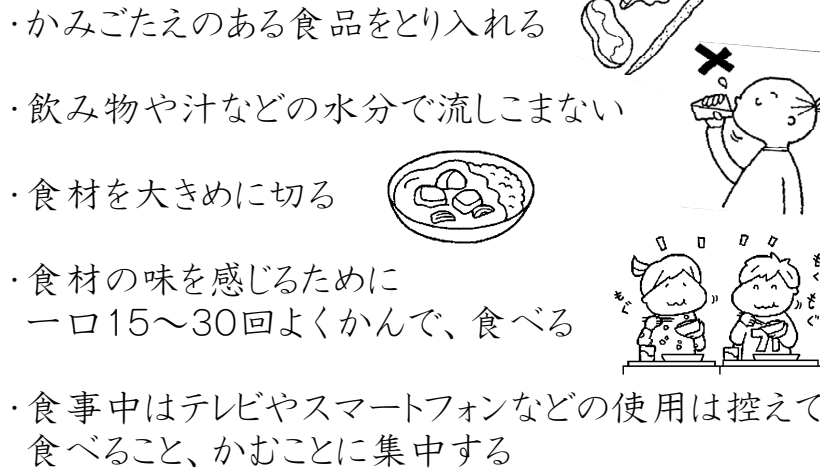 ・かみごたえのある食品をとり入れる
・飲み物や汁などの水分で流しこまない
・食材を大きめに切る
・食材の味を感じるために
一口15～30回よくかんで、食べる
もぐ
もぐ
もぐ
・食事中はテレビやスマートフォンなどの使用は控えて
食べること、かむことに集中する